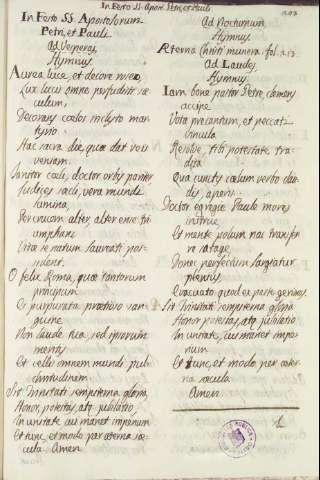 In Festo SS. Apost. Petri, et Pauli.
In Festo SS. Apostolorum
Petri, et Pauli
Ad Vesperas
Hymnus
Aurea luce, et decore roseo,
Lux lucis omne perfudisti sæ-
culum,
Decorans cœlos inclyto mar-
tyrio
Hac sacra die, quæ dat reis
veniam.
Janitor cœli, doctor orbis pariter
Judices sæcli, vera mundi
lumina,
Per crucem alter, alter ense tri-
umphans
Vitæ senatum laureati pos-
sident.
O felix Roma, quæ tantorum
principum
Es purpurata pretioso san-
guine
Non laude tua, sed ipsorum
meritis
Et cellis omnem mundi pul-
chritudinem
Sit Trinitati sempiterna gloria,
Honor, potestas, atq. jubilatio,
In unitate cui manet imperium
Et tunc, et modo per æterna sæ-
cula. Amen.
Ad Nocturnum
Hymnus
Æterna Christi munera. fol. 213.
Ad Laudes
Hymnus
Jam bone pastor Petre, clemens
accipe
Vota precantum, et peccati
vincula
Resolve, tibi potestate tra-
dita
Qua cunctis cœlum verbo clau-
dis, aperis.
Doctor egregie Paule mores
instrue,
Et mente polum nos transfer-
re satage,
Donec perfectum largiatur
plenius,
Evacuato quod ex parte gerimus.
Sit Trinitati sempiterna gloria
Honor potestas, atq. jubilatio
In unitate, cui manet impe-
rium
Et tunc, et modo per æter-
na sæcula
Amen